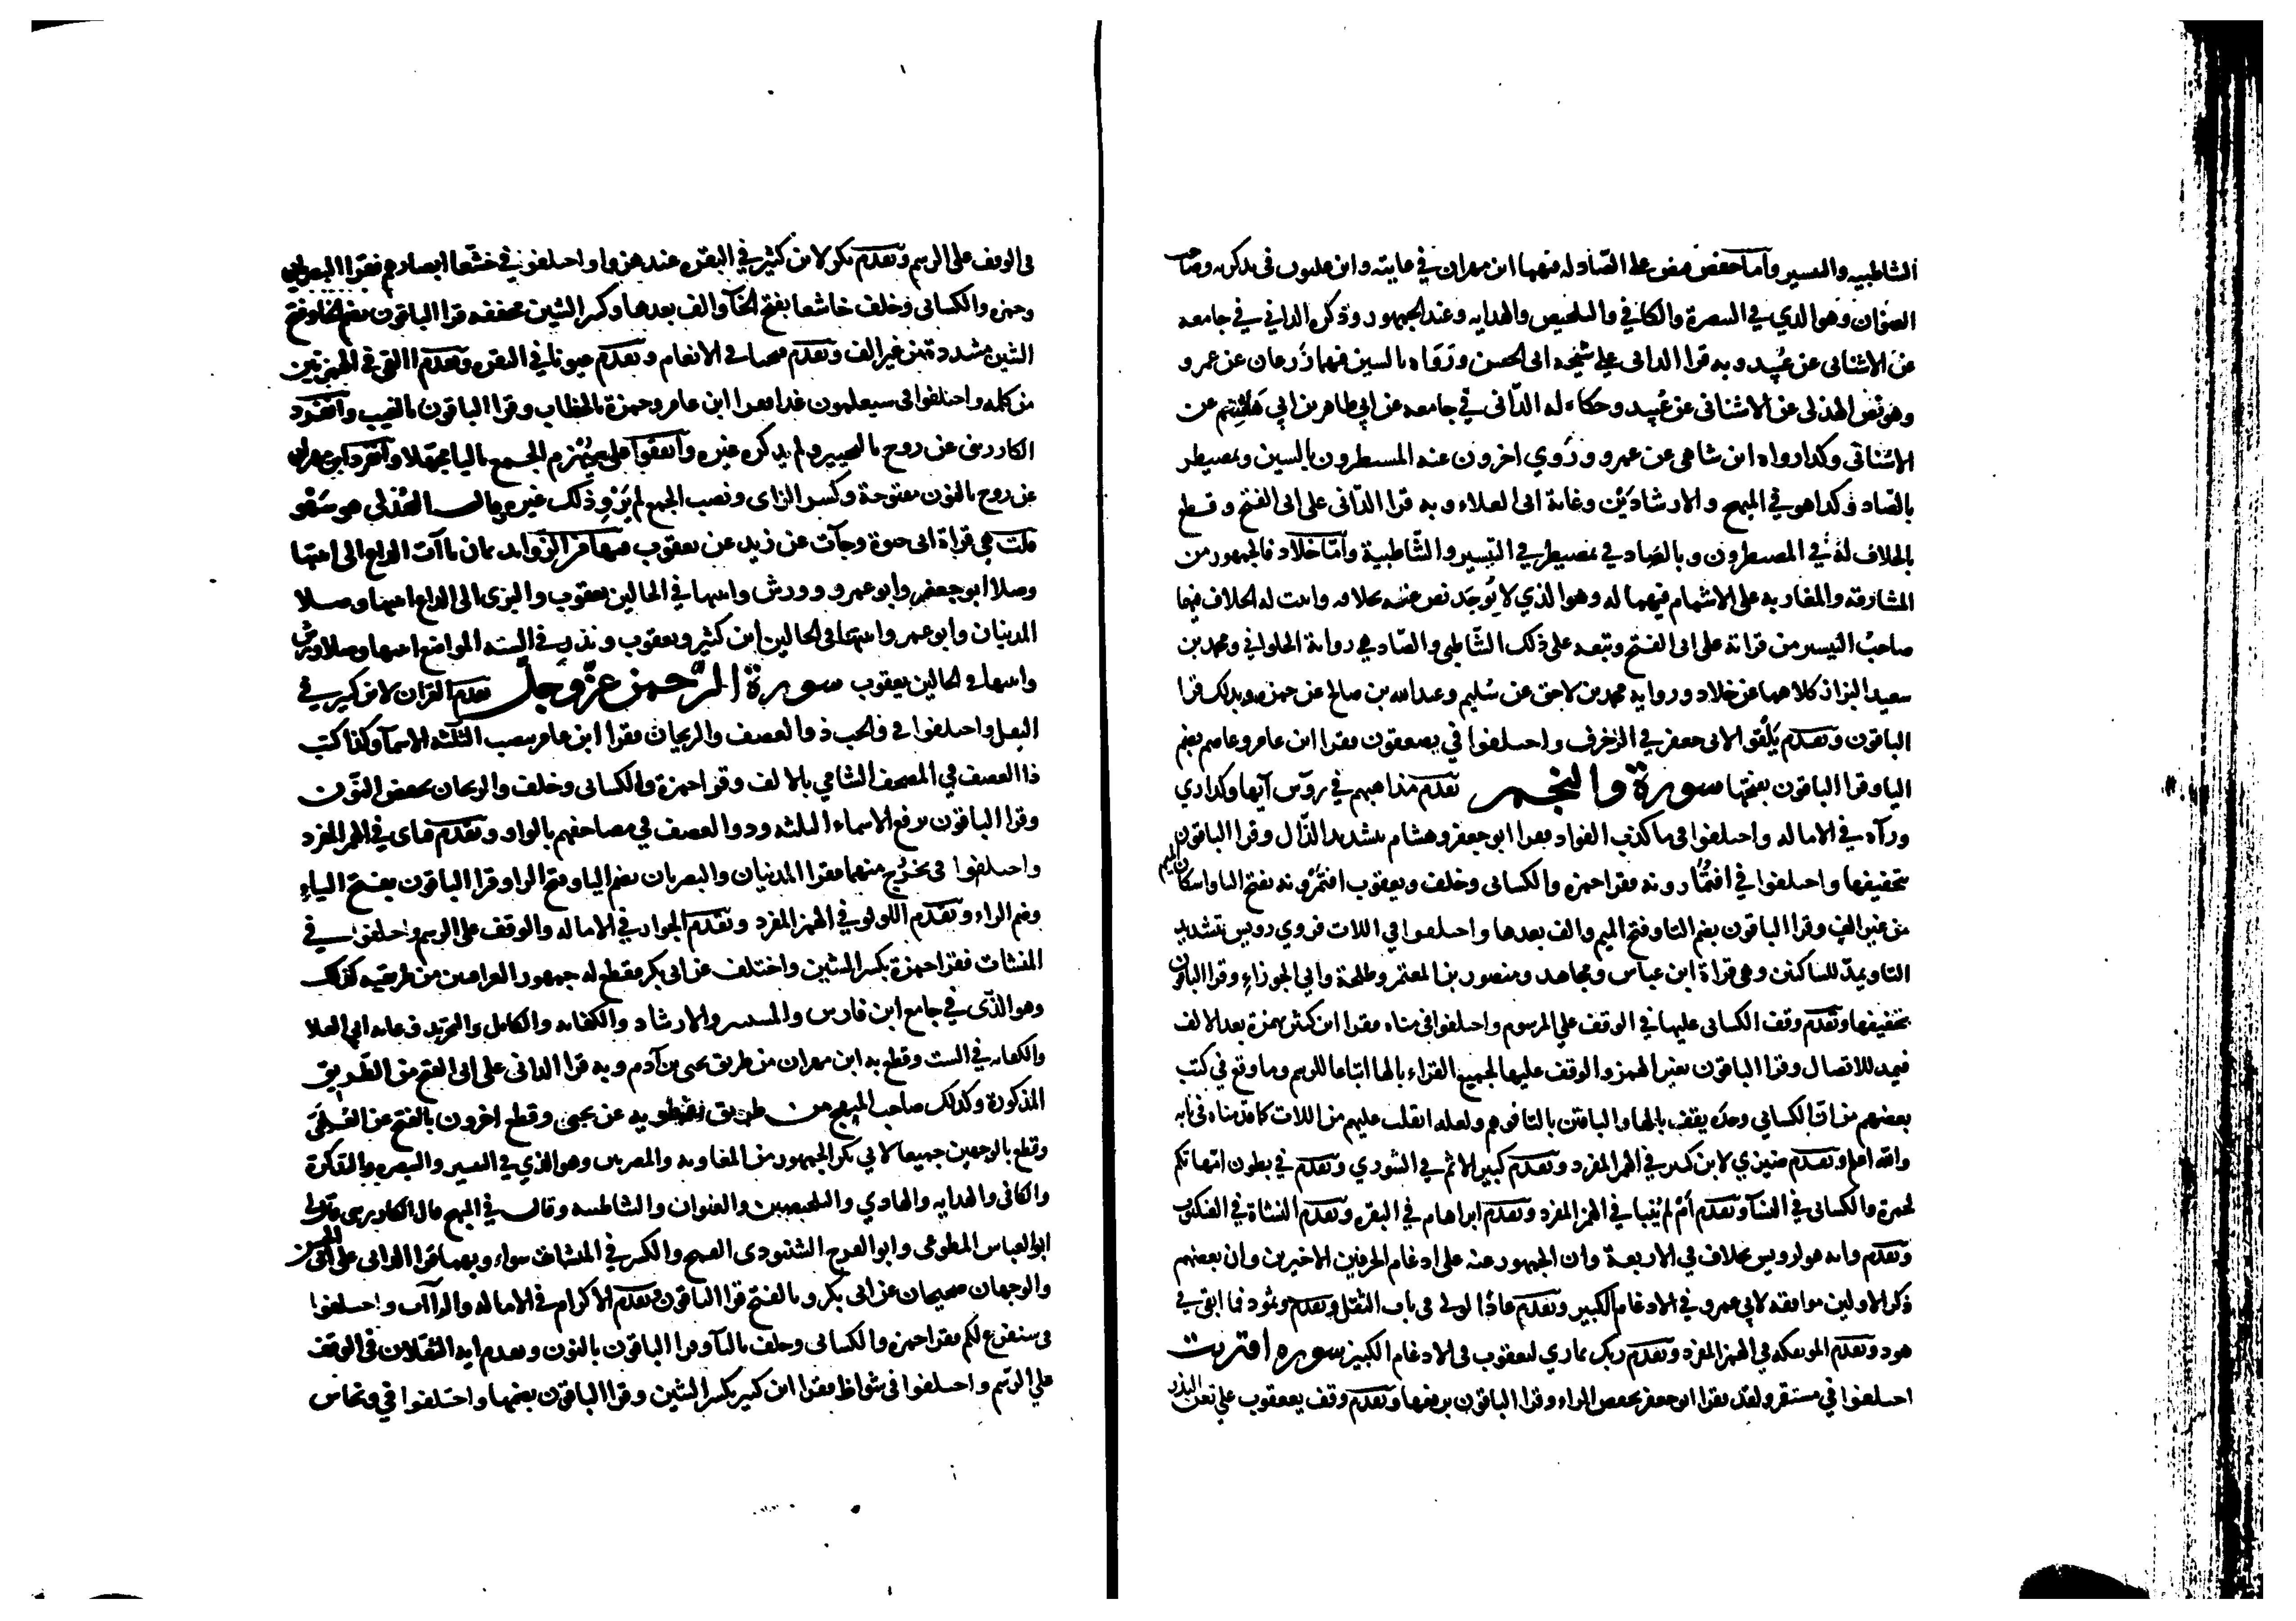 الشاطبيه والتيسير وأما حفص فنص على الصاد له فيهما ابن مهران في غايته وابن غلبون في تذكرته وصاحب
العنوان وهو الذي في التبصرة والكافي والتلخيص والهدايه وعند الجمهور وذكره الداني في جامعه
عن الاشناني عن عُبيد وبه قرا الداني على شيخه ابي الحسن ورَوَاه بالسين فيهما زرعان عن عمرو
وهو نص الهذلي عن الاشناني عن عُبيد وحكاه له الدّاني في جامعه عن ابي طاهر بن ابي هَاشِم عن
الاشناني وكذا رواه ابن شاهي عن عمرو ورَوي اخرون عنه المسيطرون بالسين وبمصيطر
بالصّاد وكذا هو في المبهج والارشادَيْن وغاية ابي العلاء وبه قرا الدّاني على ابي الفتح وقطع
بالخلاف لهُ في المصيطرون وبالصاد في بمصيطر في التيسير والشّاطبية وأمّا خلّاد فالجمهور من
المشارقه والمغاربه على الاشمام فيهما له وهو الذي لا يُوجَد نص عنه بخلافه واثبت له الخلاف فيهما
صاحبُ التيسير من قراته على ابي الفتح وتبعه على ذلك الشّاطبي والصّاد هي رواية الحلواني ومحمد بن
سعيد البزاز كلاهما عن خلاد ورواية محمد بن لاحق عن سُليم وعبد الله بن صالح عن حمزه وبذلك قرا
الباقون وتقدّم يَلْقَوا لابي جعفر في الزخرف واختلفوا في يصعقون فقرا ابن عامر وعاصم بضم
اليا وقرا الباقون بفتحها سورة والنجم تقدم مذاهبهم في روس آيها وكذا رَاي
ورآه في الاماله واختلفوا في ما كذب الفواد فقرا ابو جعفر وهشام بتشديد الذّال وقرا الباقون
بتخفيفها واختلفوا في افتُمٰارونه فقرا حمزه والكسائي وخلف ويعقوب افتَمْرُونه بفتح التا واسكان الميم
من غير الف وقرا الباقون بضم التا وفتح الميم والف بعدها واختلفوا في اللات فروي رويس بتشديد
التا ويمدّ للساكنين وهي قراة ابن عباس ومجاهد ومنصور بن المعتمر وطلحة وابي الجوزاءِ وقرا الباقون
بتخفيفها وتقدم وقف الكسائي عليها في الوقف على المرسوم واختلفوا في مناه فقرا ابن كثير بهمزة بعد الالف
فيمد للاتصال وقرا الباقون بغير الهمز والوقف عليها لجميع القراء بالها اتباعا للرسم وما وقع في كتب
بعضهم من ان الكسائي وحدَه يقف بالها والباقين بالتا فوهم ولعله انقلب عليهم من اللات كما قدّمناه في بابه
والله اعلم وتقدّم ضيزي لابن كثير في الهمز المفرد وتقدم كبير الاثم في الشوري وتقدم في بطون امّهاتكم
لحمزة والكسائي في النسآ وتقدم أمْ لم يُنبا في الهمز المفرد وتقدم ابراهام في البقره وتقدم النشاة في العنكبوت
وتقدم وانه هو لرويس بخلاف في الاربعة وان الجمهور عنه على ادغام الحرفين الاخيرين وان بعضهم
ذكر الاولين موافقة لابي عمرو في الادغام الكبير وتقدم عادًا لولى في باب النقل وتقدم وثمود فما ابقى في
هود وتقدم الموتفكه في الهمز المفرد وتقدم ربك تماري ليعقوب في الادغام الكبير سوره اقتربت
اختلفوا في مستقر ولقد فقرا ابو جعفر بخفض الراء وقرا الباقون برفعها وتقدم وقف يعقوب على تغن النذر
في الوقف على الرسم وتقدم نكر لابن كثير في البقره عند هزوا واختلفوا في خشّعا ابصارهم فقرا البصريان
وحمزه والكسائي وخلف خاشعا بفتح الخآ والف بعدها وكسر الشين مخففه وقرا الباقون بضم الخا وفتح
الشين مشددة من غير الف وتقدم ففتحنا في الانعام وتقدم عيونا في البقره وتقدم االقي في الهمزتين
من كلمه واختلفوا في سيعلمون غدا فقرا ابن عامر وحمزة بالخطاب وقرا الباقون بالغيب وانفرد
الكارزيني عن روح بالتخيير ولم يذكره غيره واتفقوا على سَيُهْزم الجمع باليا مجهلا وانفرد ابن مهران
عن روح بالنون مفتوحة وكسر الزاى ونصب الجمع لم يَرْوِ ذلك غيره وقال الهُذلي هو سَهْو
قلت هي قراءة ابي حيوة وجآت عن زيد عن يعقوب فيها من الزوايد ثمان ياآت الداع الى اثبتها
وصلا ابو جعفر وابو عمرو وورش واثبتها في الحالين يعقوب والبزي الى الداع اثبتها وصلا
المدنيان وابو عمرو واثبتها في الحالين ابن كثير ويعقوب ونذر في السته المواضع اثبتها وصلا ورش
واثبتها في الحالين يعقوب سورة الرّحمن عزّ وجَلّ تقدم القران لابن كثير في
النقل واختلفوا في والحب ذو العصف والريحان فقرا ابن عامر بنصب الثلثه الاسمآ وكذا كتب
ذا العصف في المصحف الشامي بالالف وقرا حمزة والكسائي وخلف والريحان بخفض النّون
وقرا الباقون برفع الاسماء الثلثه وذو العصف في مصاحفهم بالواو وتقدم فباي في الهمز المفرد
واختلفوا في يخرُج منهما فقرا المدنيان والبصريان بضم اليا وفتح الرا وقرا الباقون بفتح الياءِ
وضم الراء وتقدم اللولو في الهمز المفرد وتقدم الجوار في الاماله والوقف على الرسم واختلفوا في
المنشات فقرا حمزة بكسر الشين واختلف عن ابي بكر فقطع له جمهور العراقيين من طريقيه كذلك
وهو الذّي في جامع ابن فارس والمستنير والارشاد والكفايه والكامل والتجريد وغاية ابي العلا
والكفايه في الست وقطع به ابن مهران من طريق يحيى بن آدم وبه قرا الداني على ابي الفتح من الطّريق
المذكورة وكذلك صاحب المبهج من طريق نفطويه عن يحيى وقطع اخرون بالفتح عن العُليمي
وقطع بالوجهين جميعا لابي بكر الجمهور من المغاربه والمصريين وهو الذي في التيسير والتبصره والتذكرة
والكافي والهدايه والهادي والتلخيصين والعنوان والشاطبيه وقال في المبهج قال الكارزيني قال لي
ابو العباس المطوعي وابو الفرج الشنبوذي الفتح والكسر في المنشات سواء وبهما قرا الداني على ابي الحسن
والوجهان صحيحان عن ابي بكر وبالفتح قرا الباقون وتقدم الاكرام في الاماله والراآت واختلفوا
في سنفرغ لكم فقرا حمزه والكسائي وخلف باليآ وقرا الباقون بالنون وتقدم ايه الثقلان في الوقف
على الرّسم واختلفوا في شواظ فقرا ابن كثير بكسر الشين وقرا الباقون بضمها واختلفوا في ونحاس